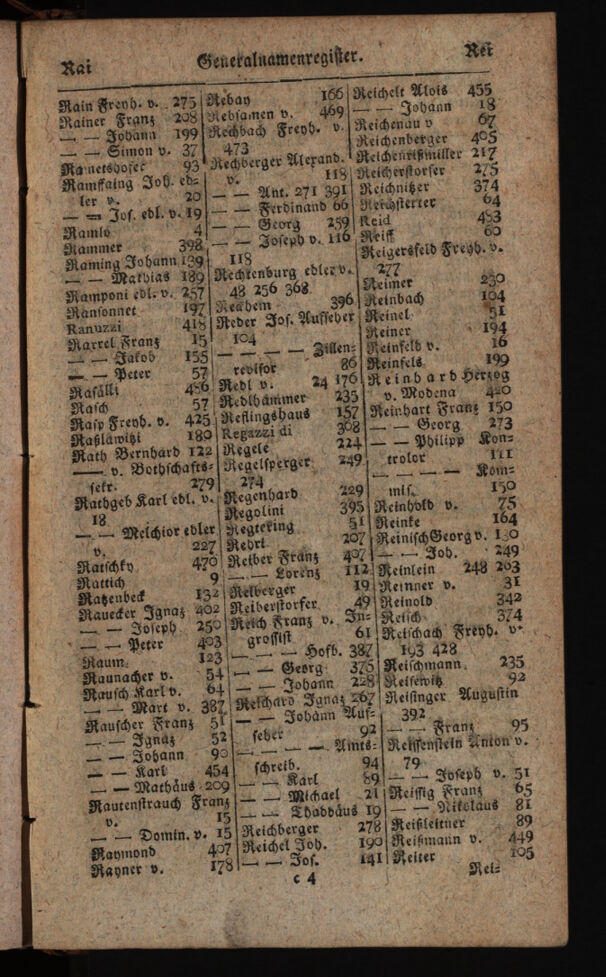 Rai
Generalnamenregister.
Rei
Rain Freyh. v. 275
Rainer Franz 208
— — Johann 199
— — Simon v. 37
Rainetshofer 93
Ramffaing Joh. ed=
ler v. 20
— — Jos. edl. v. 19
Ramlo 4
Rammer 398
Raming Johann 139
— — Mathias 189
Ramponi edl. v. 257
Ransonnet 197
Ranuzzi 418
Rarrel Franz 15
— — Jakob 155
— — Peter 57
Rasälli 486
Rasch 57
Rasp Freyh. v. 425
Raßlawitzi 180
Rath Bernhard 122
—— v. Bothschafts=
sekr. 279
Rathgeb Karl edl. v.
18
— — Melchior edler
v. 227
Ratschky 470
Rattich 9
Ratzenbeck 132
Rauecker Ignaz 402
— — Joseph 250
— — Peter 403
Raum 123
Raunacher v. 54
Rausch Karl v. 64
— — Mart v. 387
Rauscher Franz 51
— — Ignaz 52
— — Johann 90
— — Karl 454
— — Mathäus 209
Rautenstrauch Franz
v. 15
— — Domin. v. 15
Raymond 407
Rayner v. 178
Rebay 166
Rebsamen v. 469
Rechbach Freyh. v.
473
Rechberger Alexand.
v. 118
— — Ant. 271 391
— — Ferdinand 66
— — Georg 259
— — Joseph v. 116
118
Rechtenburg edler v.
48 256 368
Reckhem 396
Reder Jos. Aufseher
104
— — — — Zillen=
revisor 86
Redl v. 24 176
Redlhammer 235
Reflingshaus 157
Regazzi di 308
Regele 224
Regelsperger 249
274
Regenhard 229
Regolini 395
Regtering 51
Rehri 207
Reiber Franz 407
— — Lorenz 112
Reiberger 19
Reiberstorfer 49
Reich Franz v. In=
grossist 61
— — — Hofb. 387
— — Georg 376
— — Johann 228
Reichard Ignaz 267
— — Johann Auf=
seher 92
— — — — Amts=
schreib. 94
— — Karl 89
— — Michael 21
— — Thaddäus 19
Reichberger 278
Reichel Joh. 190
— — Jos. 141
Reichelt Alois 455
— — Johann 18
Reichenau v 67
Reichenberger 405
Reichenrißmiller 217
Reicherstorfer 275
Reichnitzer 374
Reichstetter 64
Reid 483
Reiff 60
Reigersfeld Freyh. v.
277
Reimer 230
Reinbach 104
Reinel 51
Reiner 194
Reinfeld v. 16
Reinfels 199
Reinhard Herzog
v. Modena 420
Reinhart Franz 150
— — Georg 273
— — Philipp Kon=
trolor 111
— — — — Kom=
mis. 150
Reinhold v. 75
Reinke 164
Reinisch Georg v. 130
— — Joh. 249
Reinlein 248 263
Reinner v. 31
Reinold 342
Reisch 374
Reischach Freyh. v.
193 428
Reischmann 235
Reisewitz 92
Reisinger Augustin
392
— — Franz 95
Reissenstein Anton v.
79
— — Joseph v. 51
Reissig Franz 65
— — Nikolaus 81
Reißleitner 89
Reißmann v. 449
Reiter 105
c 4
Rei=